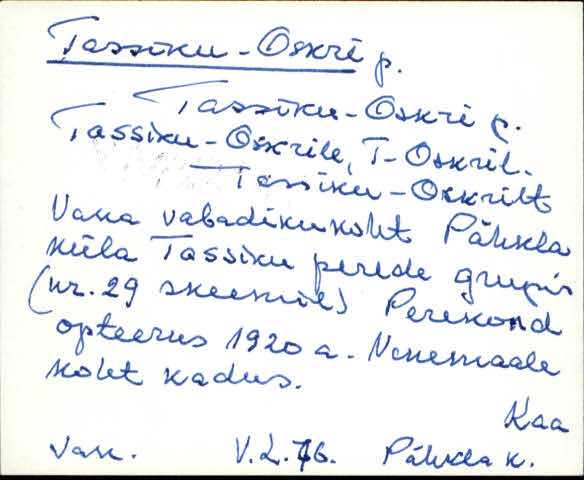 Tassiku-Oskri p.
Tassiku-Oskri p.
Tassiku-Oskrile, T-Oskril.
Tassiku-Oskrilt
Vana vabadikukoht Pähkla
küla Tassiku perede grupis
(nr. 29 skeemil) Perekond
opteerus 1920 a. Venemaale
koht kadus.
Kaa
Van. V.L.76. Pähkla k.